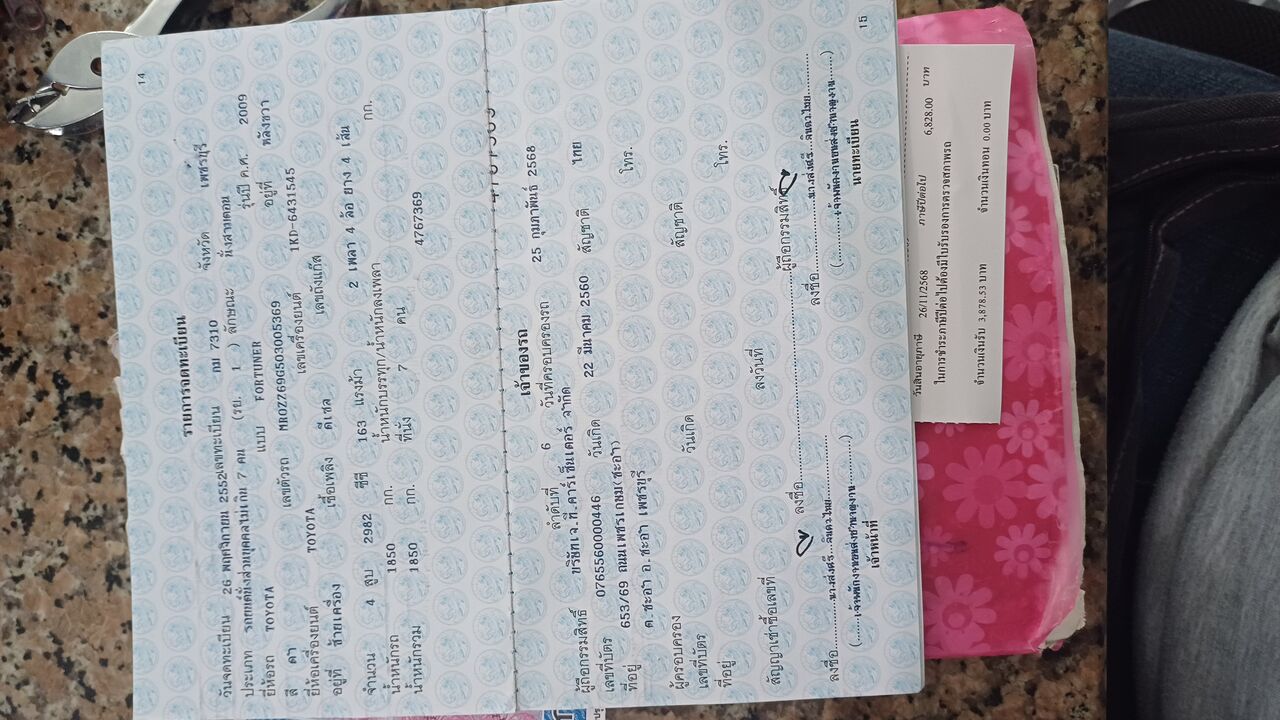 14
รายการจดทะเบียน
วันจดทะเบียน 26 พฤศจิกายน 2552 เลขทะเบียน กม 7310 จังหวัด เพชรบุรี
ประเภท รถยนต์นั่งส่วนบุคคลไม่เกิน 7 คน (รย. 1 ) ลักษณะ นั่งสามตอน
ยี่ห้อรถ TOYOTA แบบ FORTUNER รุ่นปี ค.ศ. 2009
สี ดำ เลขตัวรถ MROZZ69G503005369 อยู่ที่ หลังขวา
ยี่ห้อเครื่องยนต์ TOYOTA เลขเครื่องยนต์ 1KD-6431545
อยู่ที่ ซ้ายเครื่อง เชื้อเพลิง ดีเซล เลขถังแก๊ส
จำนวน 4 สูบ 2982 ซีซี 163 แรงม้า 2 เพลา 4 ล้อ ยาง 4 เส้น
น้ำหนักรถ 1850 กก. น้ำหนักบรรทุก/น้ำหนักลงเพลา กก.
น้ำหนักรวม 1850 กก. ที่นั่ง 7 คน 4767369
เจ้าของรถ
ลำดับที่ 6 วันที่ครอบครองรถ 25 กุมภาพันธ์ 2568
ผู้ถือกรรมสิทธิ์ บริษัทเจ.ที.คาร์เซ็นเตอร์ จำกัด
เลขที่บัตร 0765560000446 วันเกิด 22 มีนาคม 2560 สัญชาติ ไทย
ที่อยู่ 653/69 ถนนเพชรเกษม(ชะอำ) โทร.
ต.ชะอำ อ.ชะอำ เพชรบุรี
ผู้ครอบครอง
เลขที่บัตร วันเกิด สัญชาติ
ที่อยู่ โทร.
สัญญาเช่าซื้อเลขที่ ลงวันที่ ผู้ถือกรรมสิทธิ์
ลงชื่อ
ลงชื่อ
ลงชื่อ
เจ้าหน้าที่
นายทะเบียน
15
วันสิ้นอายุภาษี 26/11/2568 ภาษีปีต่อไป 6,828.00 บาท
ในการชำระภาษีปีต่อไปต้องมีใบรับรองการตรวจสภาพรถ
จำนวนเงินรับ 3,878.53 บาท จำนวนเงินทอน 0.00 บาท